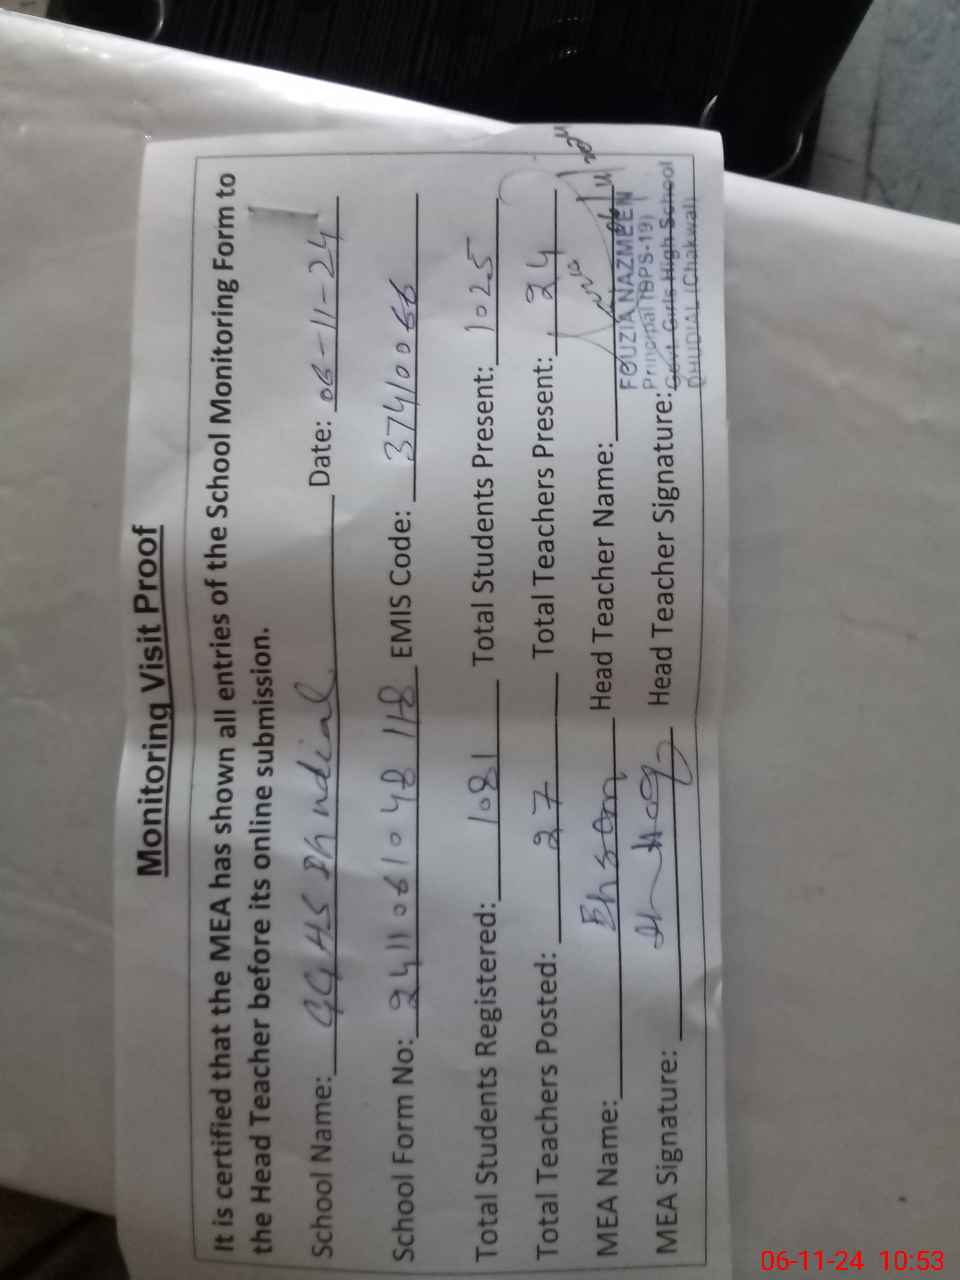 Monitoring Visit Proof
It is certified that the MEA has shown all entries of the School Monitoring Form to
the Head Teacher before its online submission.
School Name: GGHS Dhudial Date: 06-11-24
School Form No: 2411061048118 EMIS Code: 37410066
Total Students Registered: 1081 Total Students Present: 1025
Total Teachers Posted: 27 Total Teachers Present: 24
MEA Name: Ehsan Head Teacher Name:
MEA Signature: Head Teacher Signature:
FOUZIA NAZMEEN
Principal (BPS-19)
Govt. Girls High School
DHUDIAL (Chakwal)
06-11-24 10:53